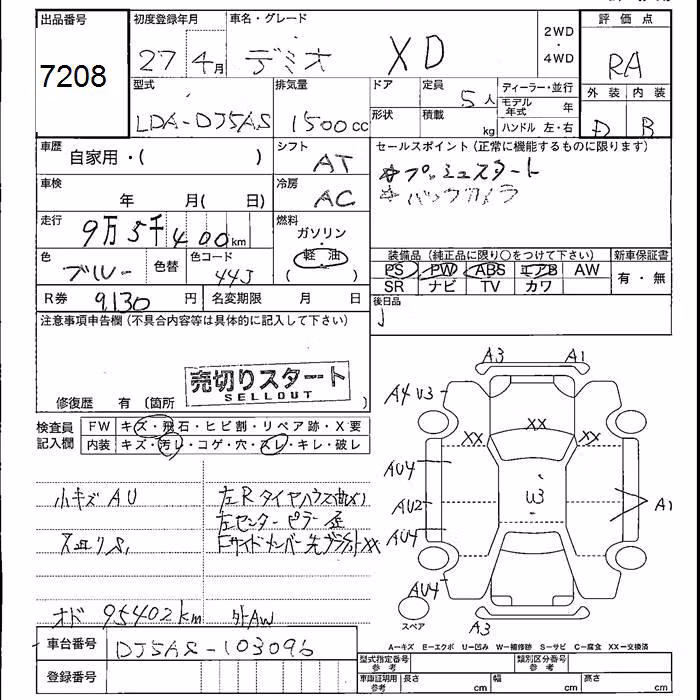 出品番号 初度登録年月 車名・グレード 評価点
7208 27年 4月 デミオ XD 2WD・4WD RA
外装 内装
D B
型式 排気量 ドア 定員 ディーラー・並行
LDA-DJ5AS 1500cc 5人 モデル年式 年
形状 積載 kg ハンドル 左・右
車歴 自家用・( ) シフト AT セールスポイント(正常に機能するものに限ります)
車検 年 月( 日) 冷房 AC *プッシュスタート
*バックカメラ
走行 9万5千400km 燃料 ガソリン・軽油 ( )
装備品(純正品に限り○をつけて下さい) 新車保証書
色 ブルー 色替 色コード 44J PS PW ABS エアB AW 有・無
SR ナビ TV カワ
R券 9,130円 名変期限 月 日 後日品
注意事項申告欄(不具合内容等は具体的に記入して下さい)
売切りスタート
SELLOUT
修復歴 有(箇所 )
検査員記入欄 FW キズ・飛石・ヒビ割・リペア跡・X要
内装 キズ・汚レ・コゲ・穴・スレ・キレ・破レ
A3 A1
A4 U3
XX XX XX
AU4
AU2 U3 A1
AU4
AU4
A3
スペア
小キズ AU 左Rタイヤハウス曲X1
左センターピラー歪
Fサイドメンバー先
オド 95402km 外AW
A-キズ E-エクボ U-凹み W-補修跡 S-サビ C-腐食 XX-交換済
車台番号 DJ5AS-103096
登録番号
型式指定番号 参考 類別区分番号 参考
車庫証明用 参考 長さ cm 幅 cm 高さ cm